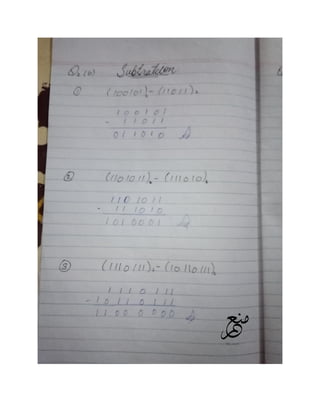 Q2 (b) Subtraction
① (100101)₂ - (11011)₂
100101
- 11011
011010
② (1101011)₂ - (111010)₂
1101011
- 111010
1010001
③ (1110111)₂ - (10110111)₂
1110111
- 10110111
11000000